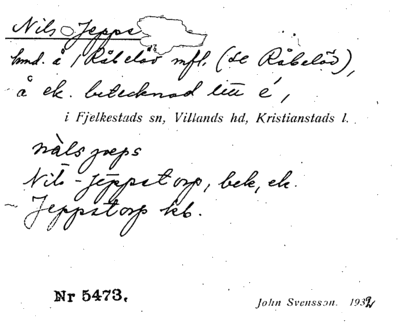 Nils Jepps
hmd. å 1 Råbelöv mfl. (se Råbelöv),
å ek. betecknad litt é,
i Fjelkestads sn, Villands hd, Kristianstads l.
nàls jæps
Nils-Jeppstorp, bek, ek.
Jeppstorp kb.
Nr 5473.
John Svensson. 1932